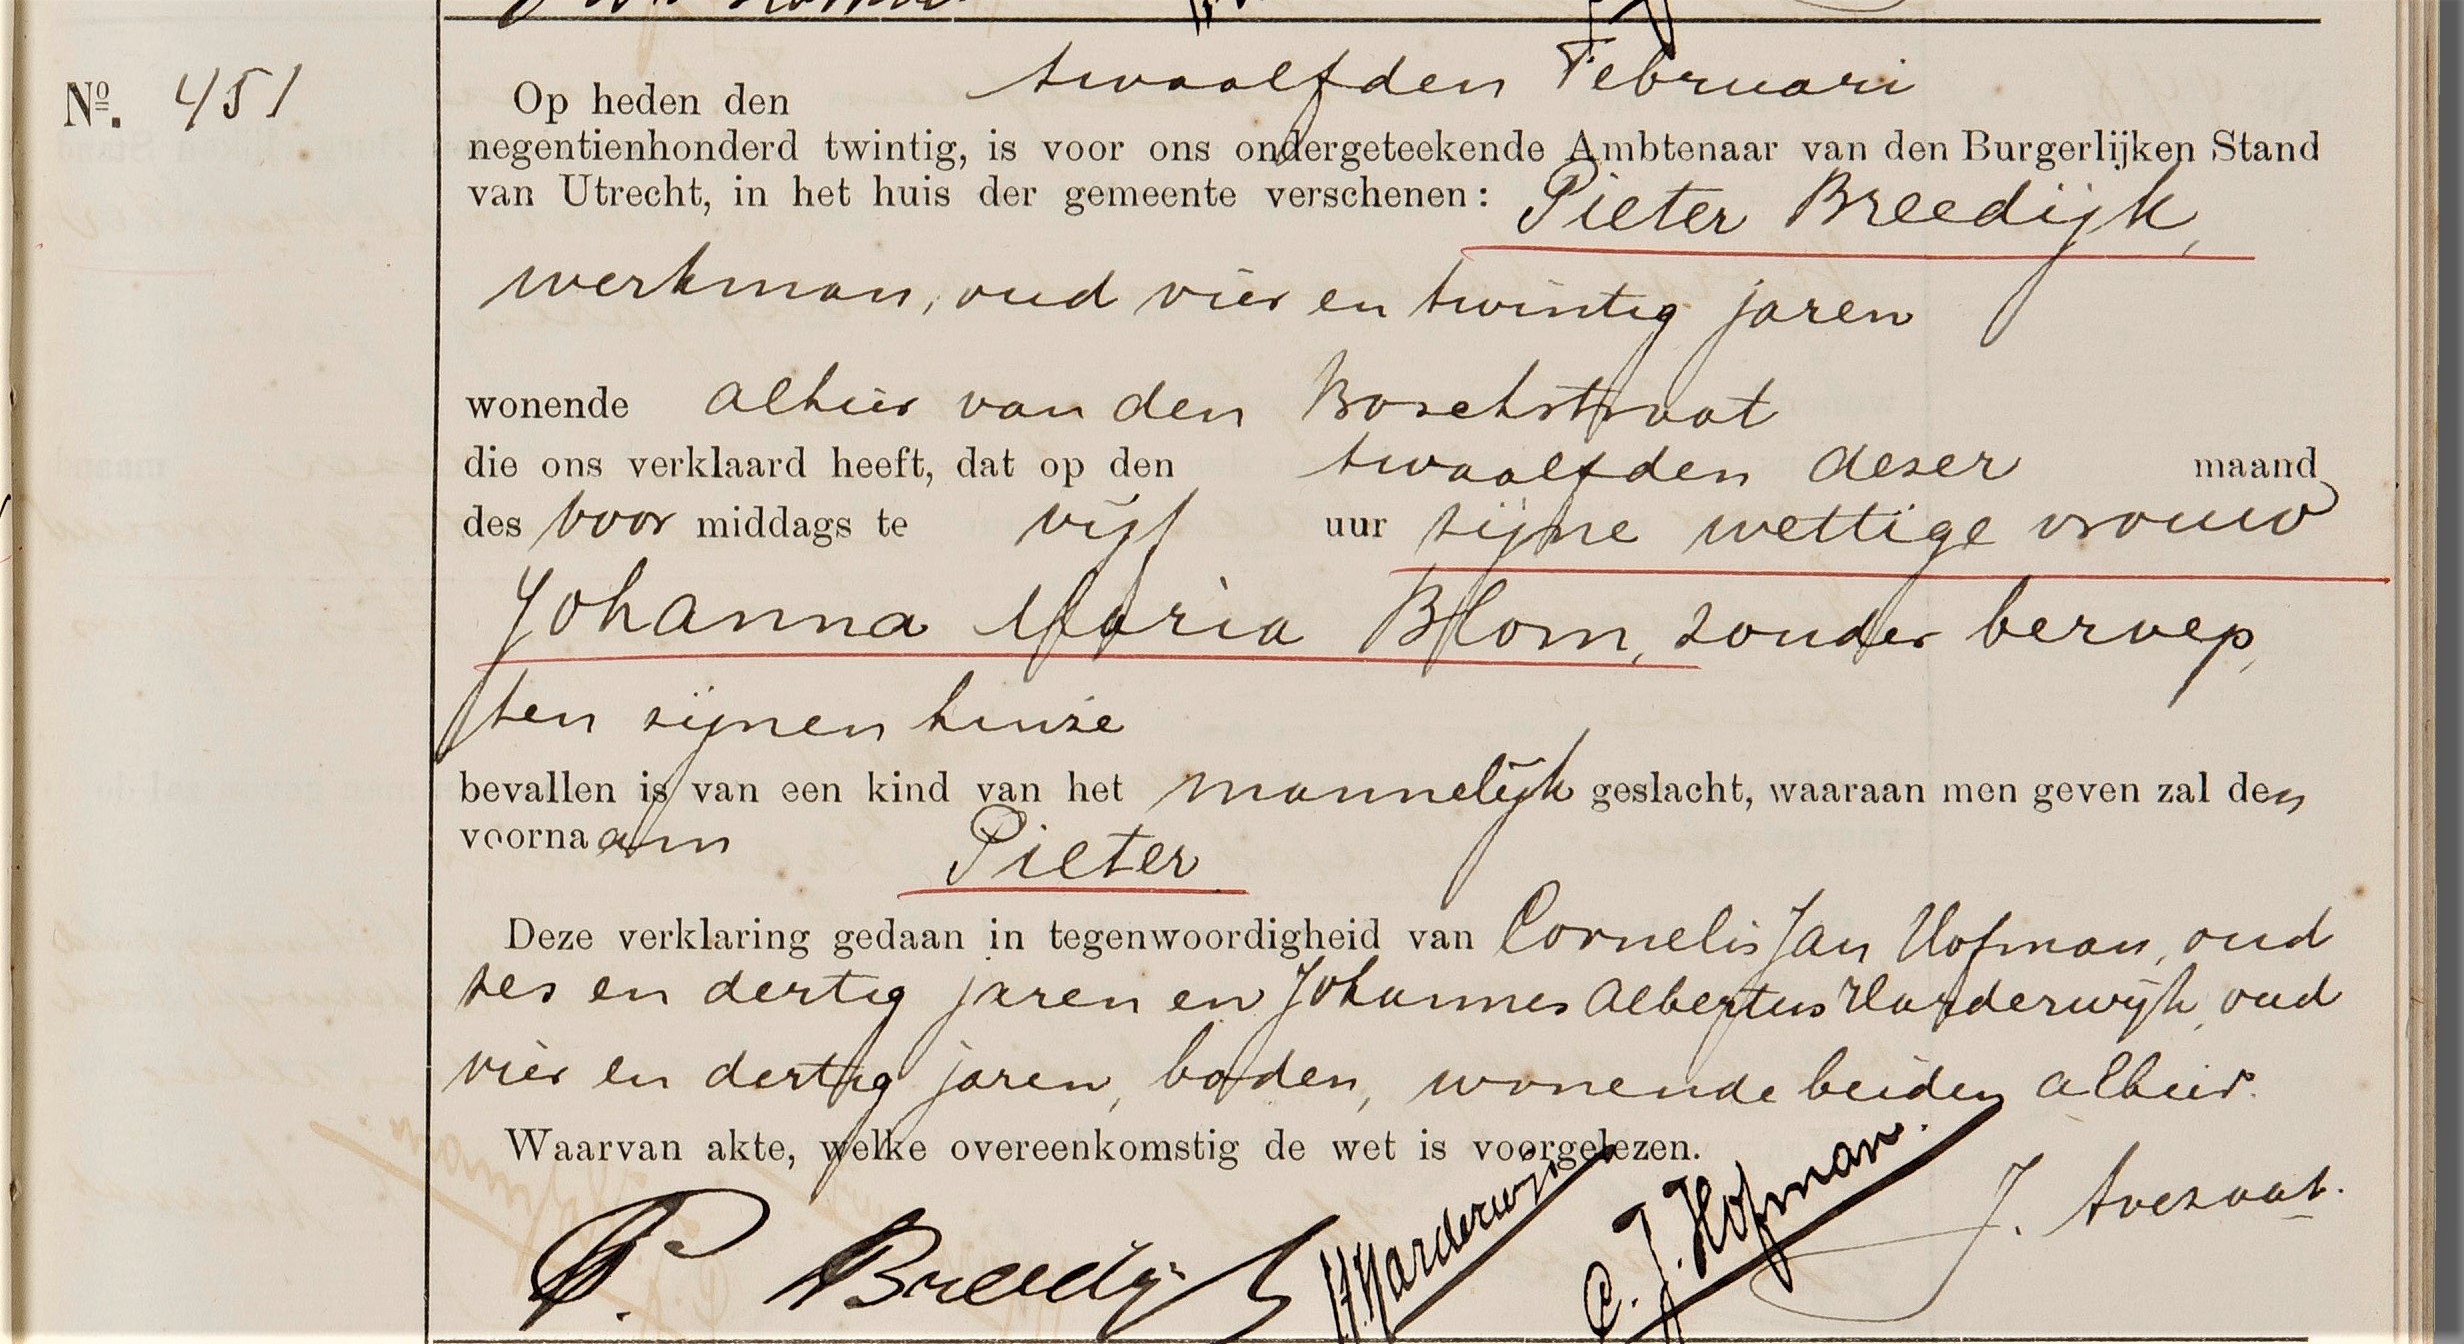 Nº. 451
Op heden den twaalfden Februari
negentienhonderd twintig, is voor ons ondergeteekende Ambtenaar van den Burgerlijken Stand
van Utrecht, in het huis der gemeente verschenen: Pieter Breedijk,
werkman, oud vier en twintig jaren
wonende alhier van den Boschstraat
die ons verklaard heeft, dat op den twaalfden dezer maand
des voor middags te vijf uur zijne wettige vrouw
Johanna Maria Blom, zonder beroep,
ten zijnen huize
bevallen is van een kind van het mannelijk geslacht, waaraan men geven zal den
voornaam Pieter
Deze verklaring gedaan in tegenwoordigheid van Cornelis Jan Hofman, oud
zes en dertig jaren en Johannes Albertus Harderwijk, oud
vier en dertig jaren, boden, wonende beiden alhier.
Waarvan akte, welke overeenkomstig de wet is voorgelezen.
P. Breedijk Harderwijk C. J. Hofman. J.